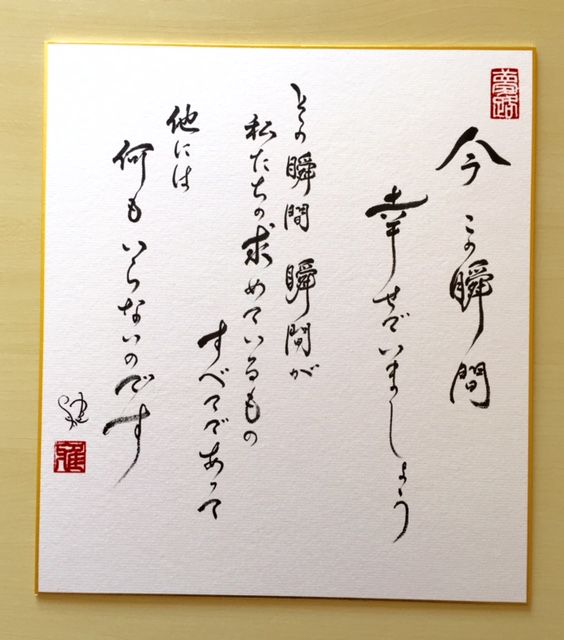 今 この瞬間
幸せでいましょう
どの瞬間 瞬間が
私たちの求めているもの
すべてであって
他には
何もいらないのです